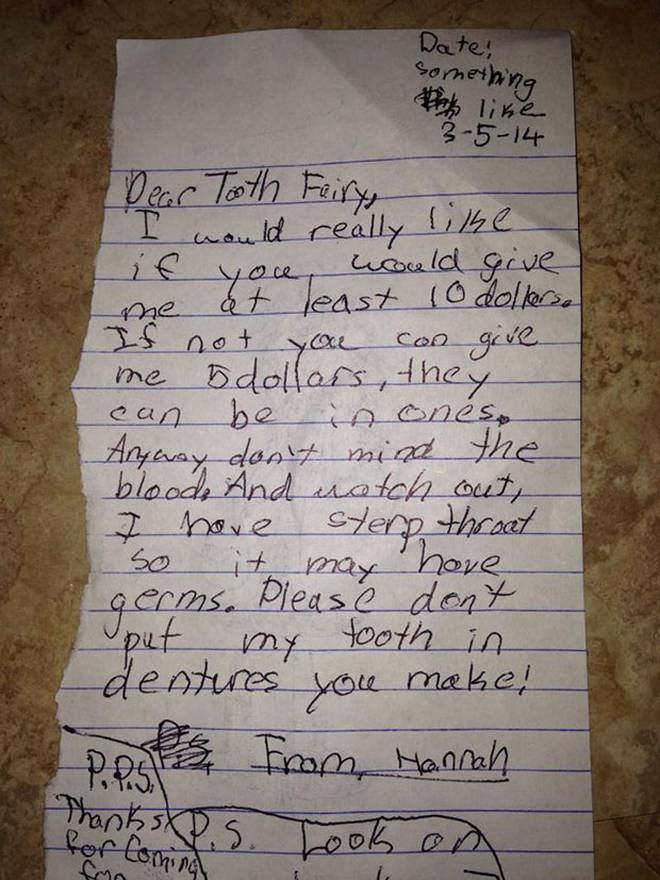 Date!
something
like
3-5-14
Dear Tooth Fairy,
I would really like
if you would give
me at least 10 dollars.
If not you can give
me 5 dollars, they
can be in ones.
Anyway don't mind the
blood. And watch out,
I have sterp throat
so it may have
germs. Please don't
put my tooth in
dentures you make!
From, Hannah
P.P.S.
Thanks
for coming
P.S. Look on